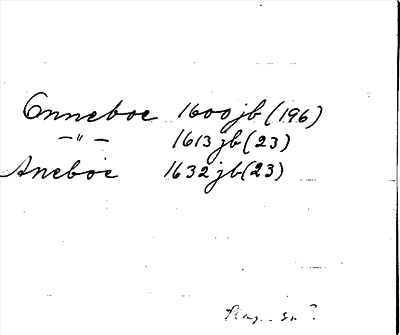 Onneboe 1600 jb (196)
—"— 1613 jb (23)
Aneboe 1632 jb (23)
sn ?